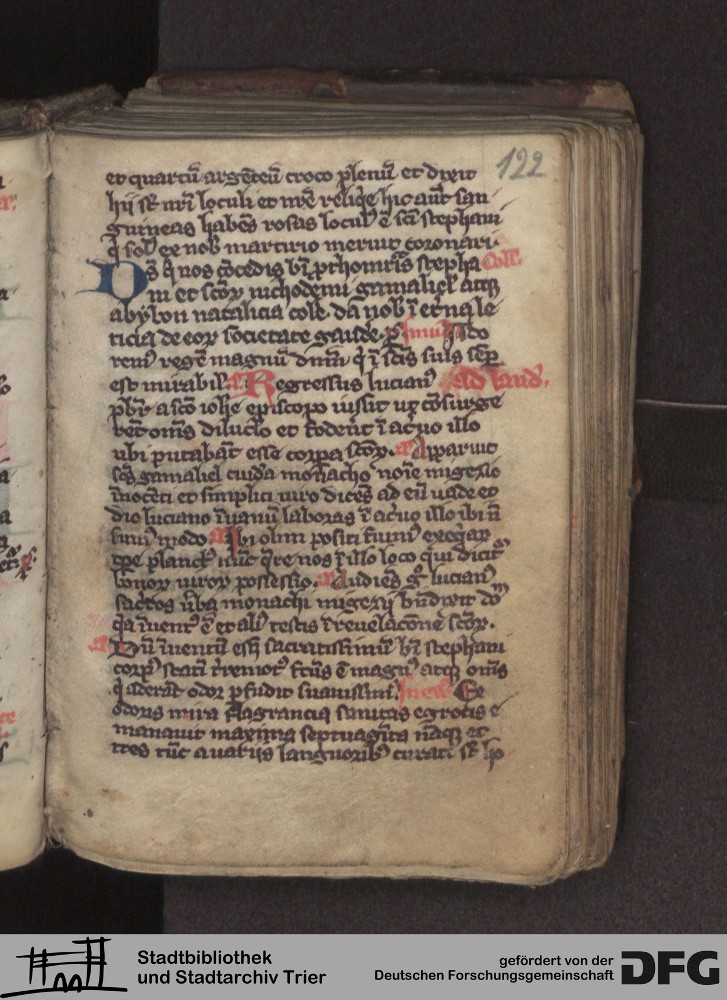 122
et quartū argēteū croco plenū et dixit
hii st nr̄i loculi et nr̄e reliq̄e hic aūt san
guineas habēs rosas locul' ē sc̄i stephani
q̇ sol' ex nob martirio meruit coronari.
Ds̄ q̇ nos cōcedis bī pthomr̄is stepha Coll'.
ni et sc̄oꝝ nichodemi gamaliel' atq̢
abybon natalicia cole. dā nob ī et̄na le
ticia de eoꝝ societate gaude. p Inuit Ado
rem' regē magnū dnm̄ q̇ ī sc̄is suis semp
est mirabil' a Regressus lucian' ad laud'.
pbr̄ a sc̄o iohe episcopo iussit ut cōsurge
rēt om̄s diluclo et foderēt ī aċuo illo
ubi putabāt esse corpa sc̄oꝝ. a Apparuit
sc̄s gamaliel cuidā monacho noīe migexio
īnocēti et simplici uiro dicēs ad eū uade et
dic luciano īuanū laboras ī aċuo illo ibi n̄
sum' modo a Ibi olim positi fuim'
tpe planct' nūc q̄re nos ī illo loco qui dicit'
bonoꝝ uiroꝝ possessio. a Audiēs g° lucian'
sac̄tos ūba monachi migexii bn̄dixit dō
q̇a īuent' ē et ali' testis ī reuelacōne sc̄oꝝ.
a Dū īuentū eēt sacratissimū bī stephani
corp' statī t̄remot' fc̄us ē magn' atq̢ om̄s
q̇ aderāt odor pfudit suauissimi. In eu Ex
odoris mira flagrancia sanitas egrotis e
manauit maxima septuagīta nāq̢ et
tres tūc a uariis languorib' curati st ho
Stadtbibliothek
und Stadtarchiv Trier
gefördert von der
Deutschen Forschungsgemeinschaft
DFG